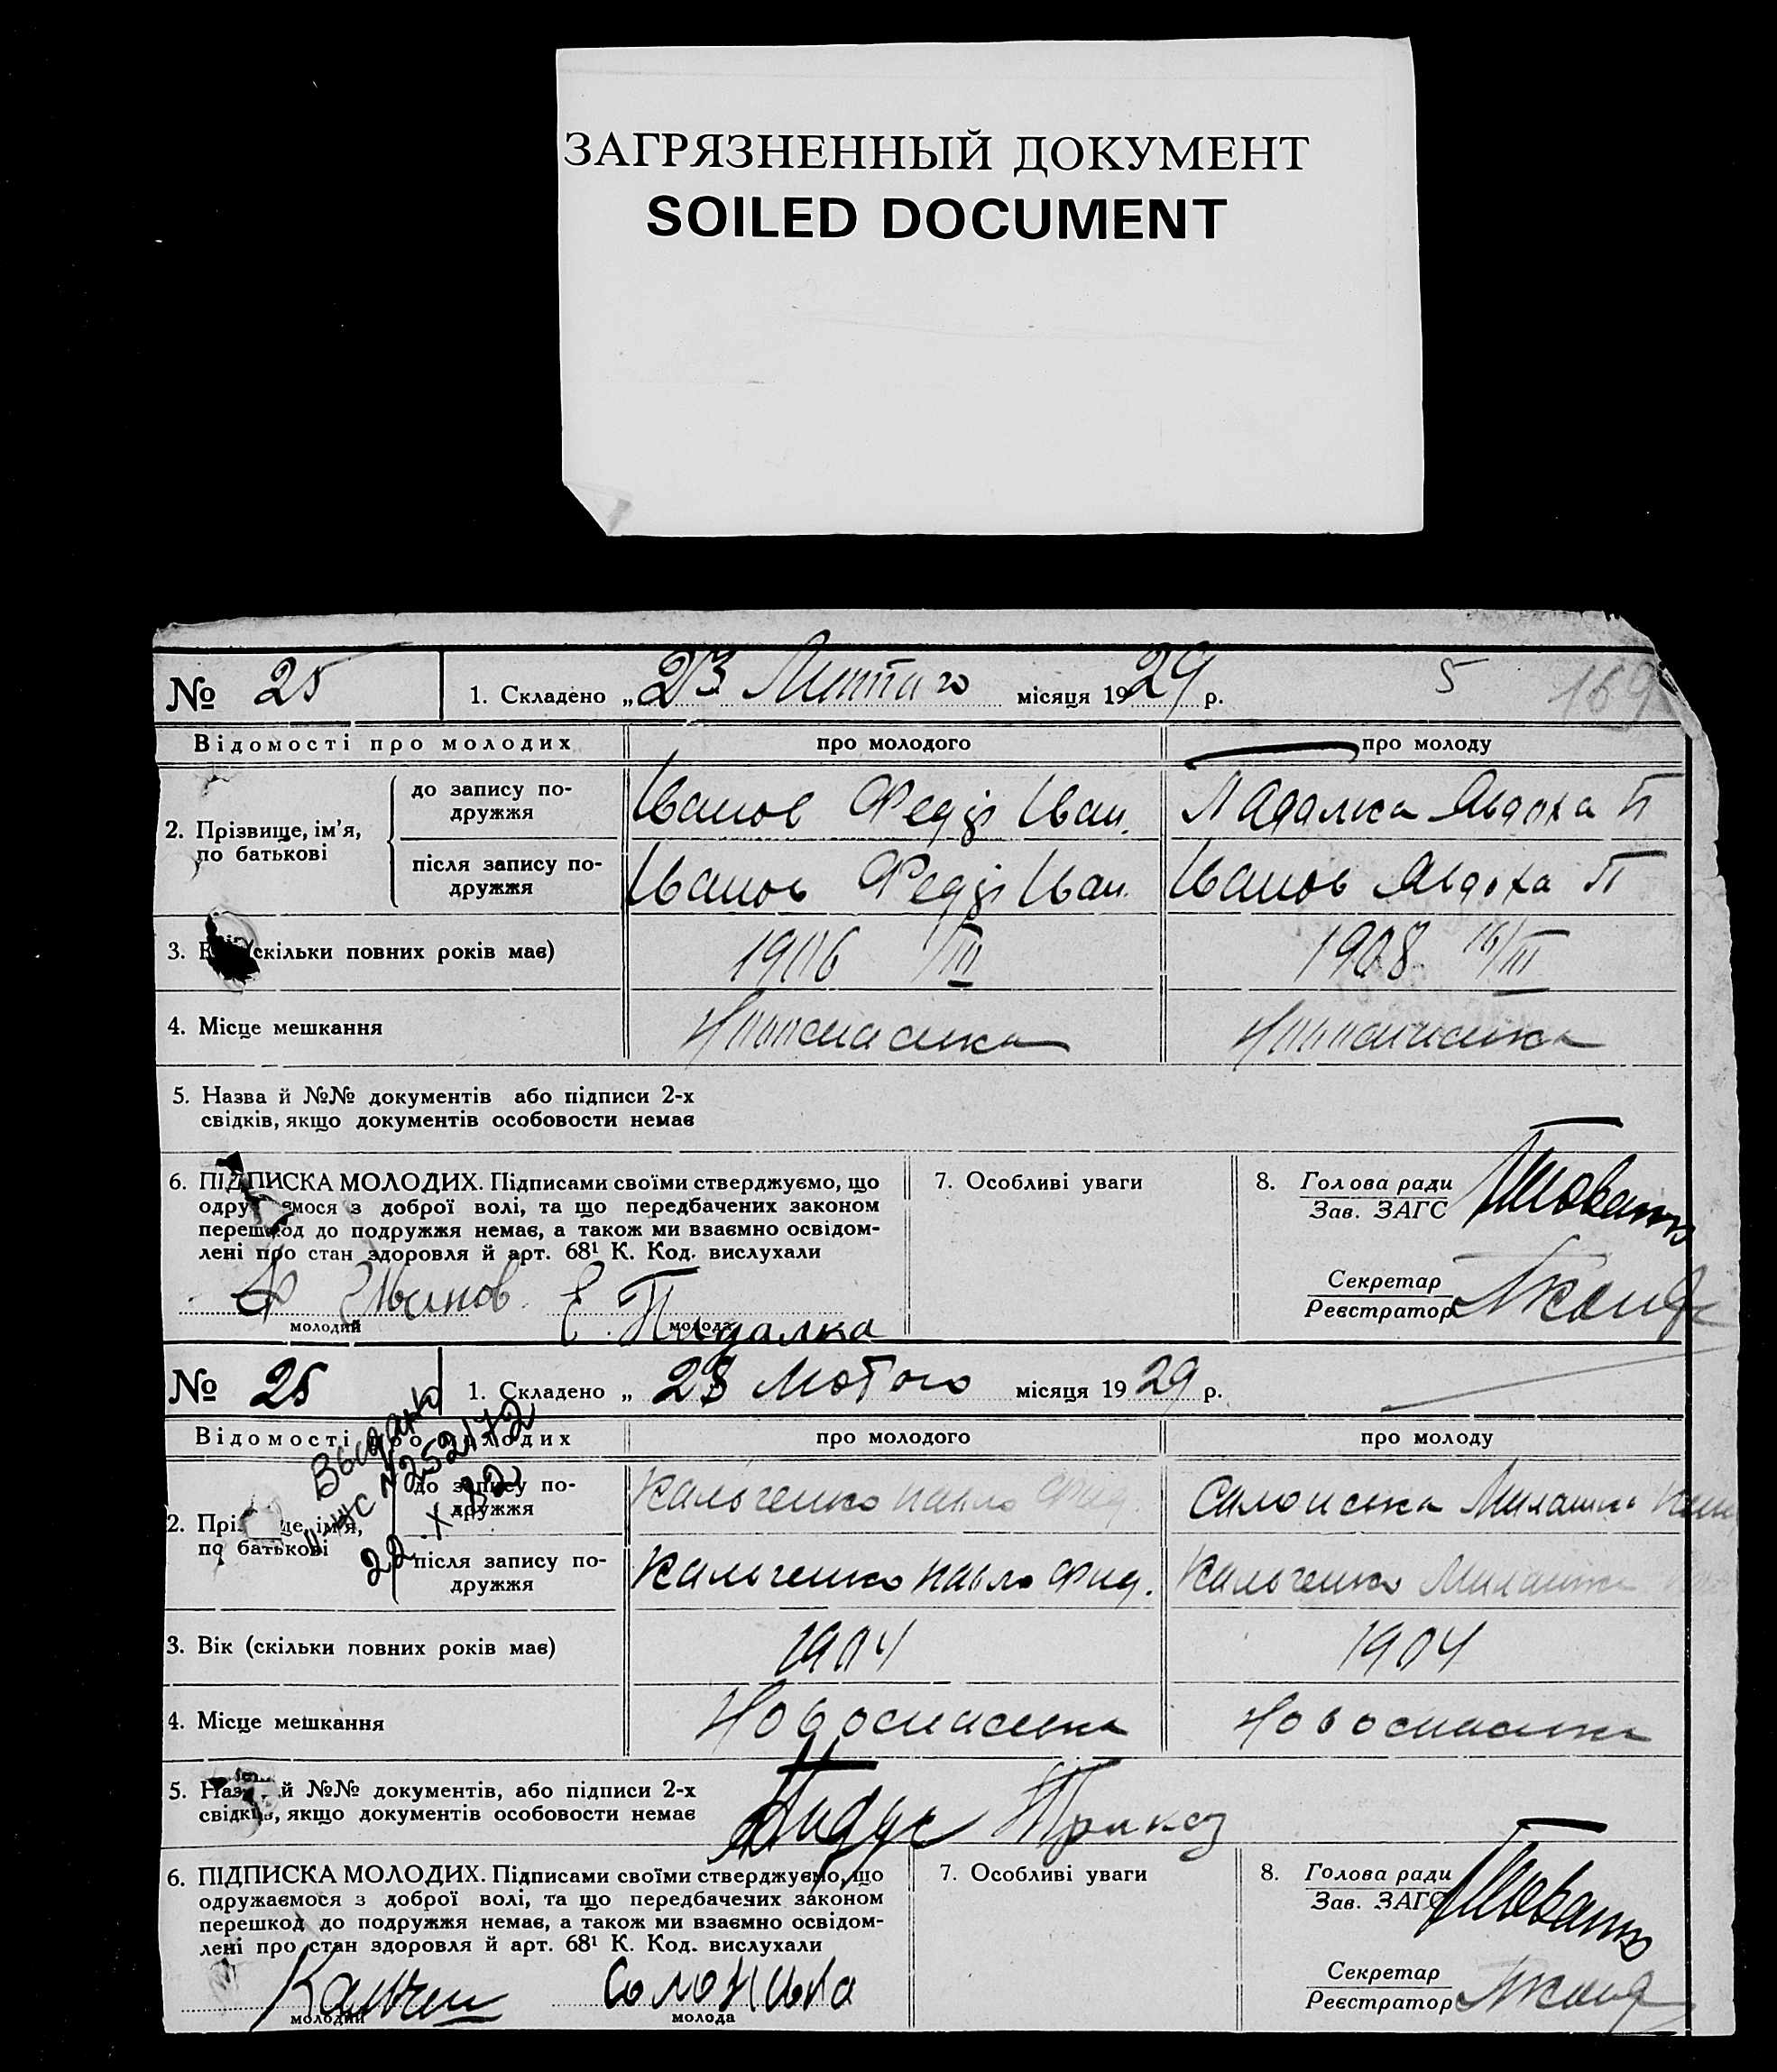 ЗАГРЯЗНЕННЫЙ ДОКУМЕНТ
SOILED DOCUMENT
№ 25 1. Складено „23 Лютого місяця 1929 р. 5 169
Відомості про молодих про молодого про молоду
2. Прізвище, ім’я, по батькові
до запису подружжя Іванов Федір Іван. Падалка Явдоха П
після запису подружжя Іванов Федір Іван. Іванов Явдоха П
3. (скільки повних років має) 1906 /III 1908 16/III
4. Місце мешкання Новоспаська Новоспаська
5. Назва й №№ документів або підписи 2-х
свідків, якщо документів особовости немає
6. ПІДПИСКА МОЛОДИХ. Підписами своїми стверджуємо, що
одружаємося з доброї волі, та що передбачених законом
перешкод до подружжя немає, а також ми взаємно освідом-
лені про стан здоровля й арт. 68¹ К. Код. вислухали
Ф Иванов Е. Падалка
молодий молода
7. Особливі уваги
8. Голова ради
Зав. ЗАГС
Секретар
Реєстратор
№ 25 1. Складено „ 23 Лютого місяця 1929 р.
Выдано
№ 252172
22.X
Відомості про молодих про молодого про молоду
2. Прізвище, ім’я,
по батькові
до запису по-
дружжя Кальченко Павло Фид. Салонська Милашка
після запису по-
дружжя Кальченко Павло Фид. Кальченко Милашка
3. Вік (скільки повних років має) 1904 1904
4. Місце мешкання Новоспаська Новоспаська
5. Назва й №№ документів, або підписи 2-х
свідків, якщо документів особовости немає
6. ПІДПИСКА МОЛОДИХ. Підписами своїми стверджуємо, що
одружаємося з доброї волі, та що передбачених законом
перешкод до подружжя немає, а також ми взаємно освідом-
лені про стан здоровля й арт. 68¹ К. Код. вислухали
Кальчен Солонська
молодий молода
7. Особливі уваги
8. Голова ради
Зав. ЗАГС
Секретар
Реєстратор